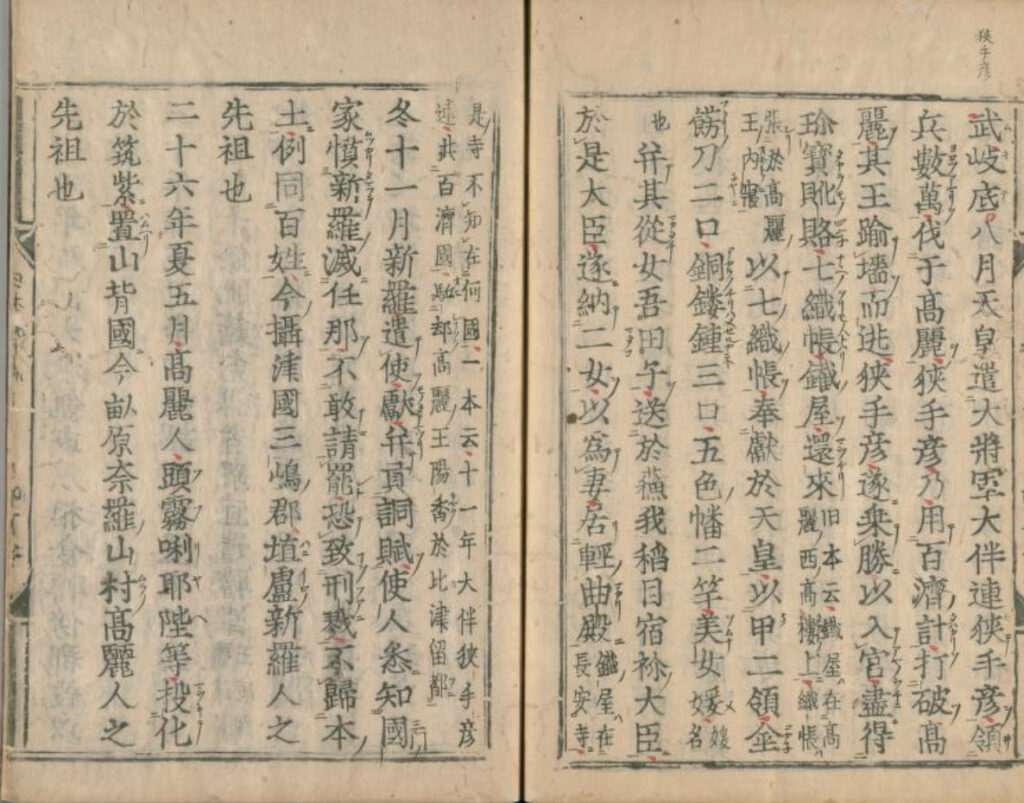 狭手彦
武岐底八月天皇遣大將軍大伴連狹手彦領
兵數萬伐于髙麗狹手彦乃用百濟計打破髙
麗其王踰墻而逃狹手彦遂乗勝以入宮盡得
珎寶貨賂七織帳鐵屋還來旧本云鐵屋在髙麗西髙樓上織帳
張於髙麗王内寢以七織帳奉獻於天皇以甲二領金
餝刀二口銅鏤鍾三口五色幡二竿美女媛媛名
也并其從女吾田子送於蘓我稲目宿祢大臣
於是大臣遂納二女以爲妻居輕曲殿鐵屋在長安寺
是寺不知在何國一本云十一年大伴狹手彦
共百濟國駈却髙麗王陽香於比津留都
冬十一月新羅遣使獻并貢調賦使人悉知國
家憤新羅滅任那不敢請罷恐致刑戮不歸本
土例同百姓今攝津國三嶋郡埴盧新羅人之
先祖也
二十六年夏五月髙麗人頭霧唎耶陛等投化
於筑紫置山背國今畝原奈羅山村髙麗人之
先祖也